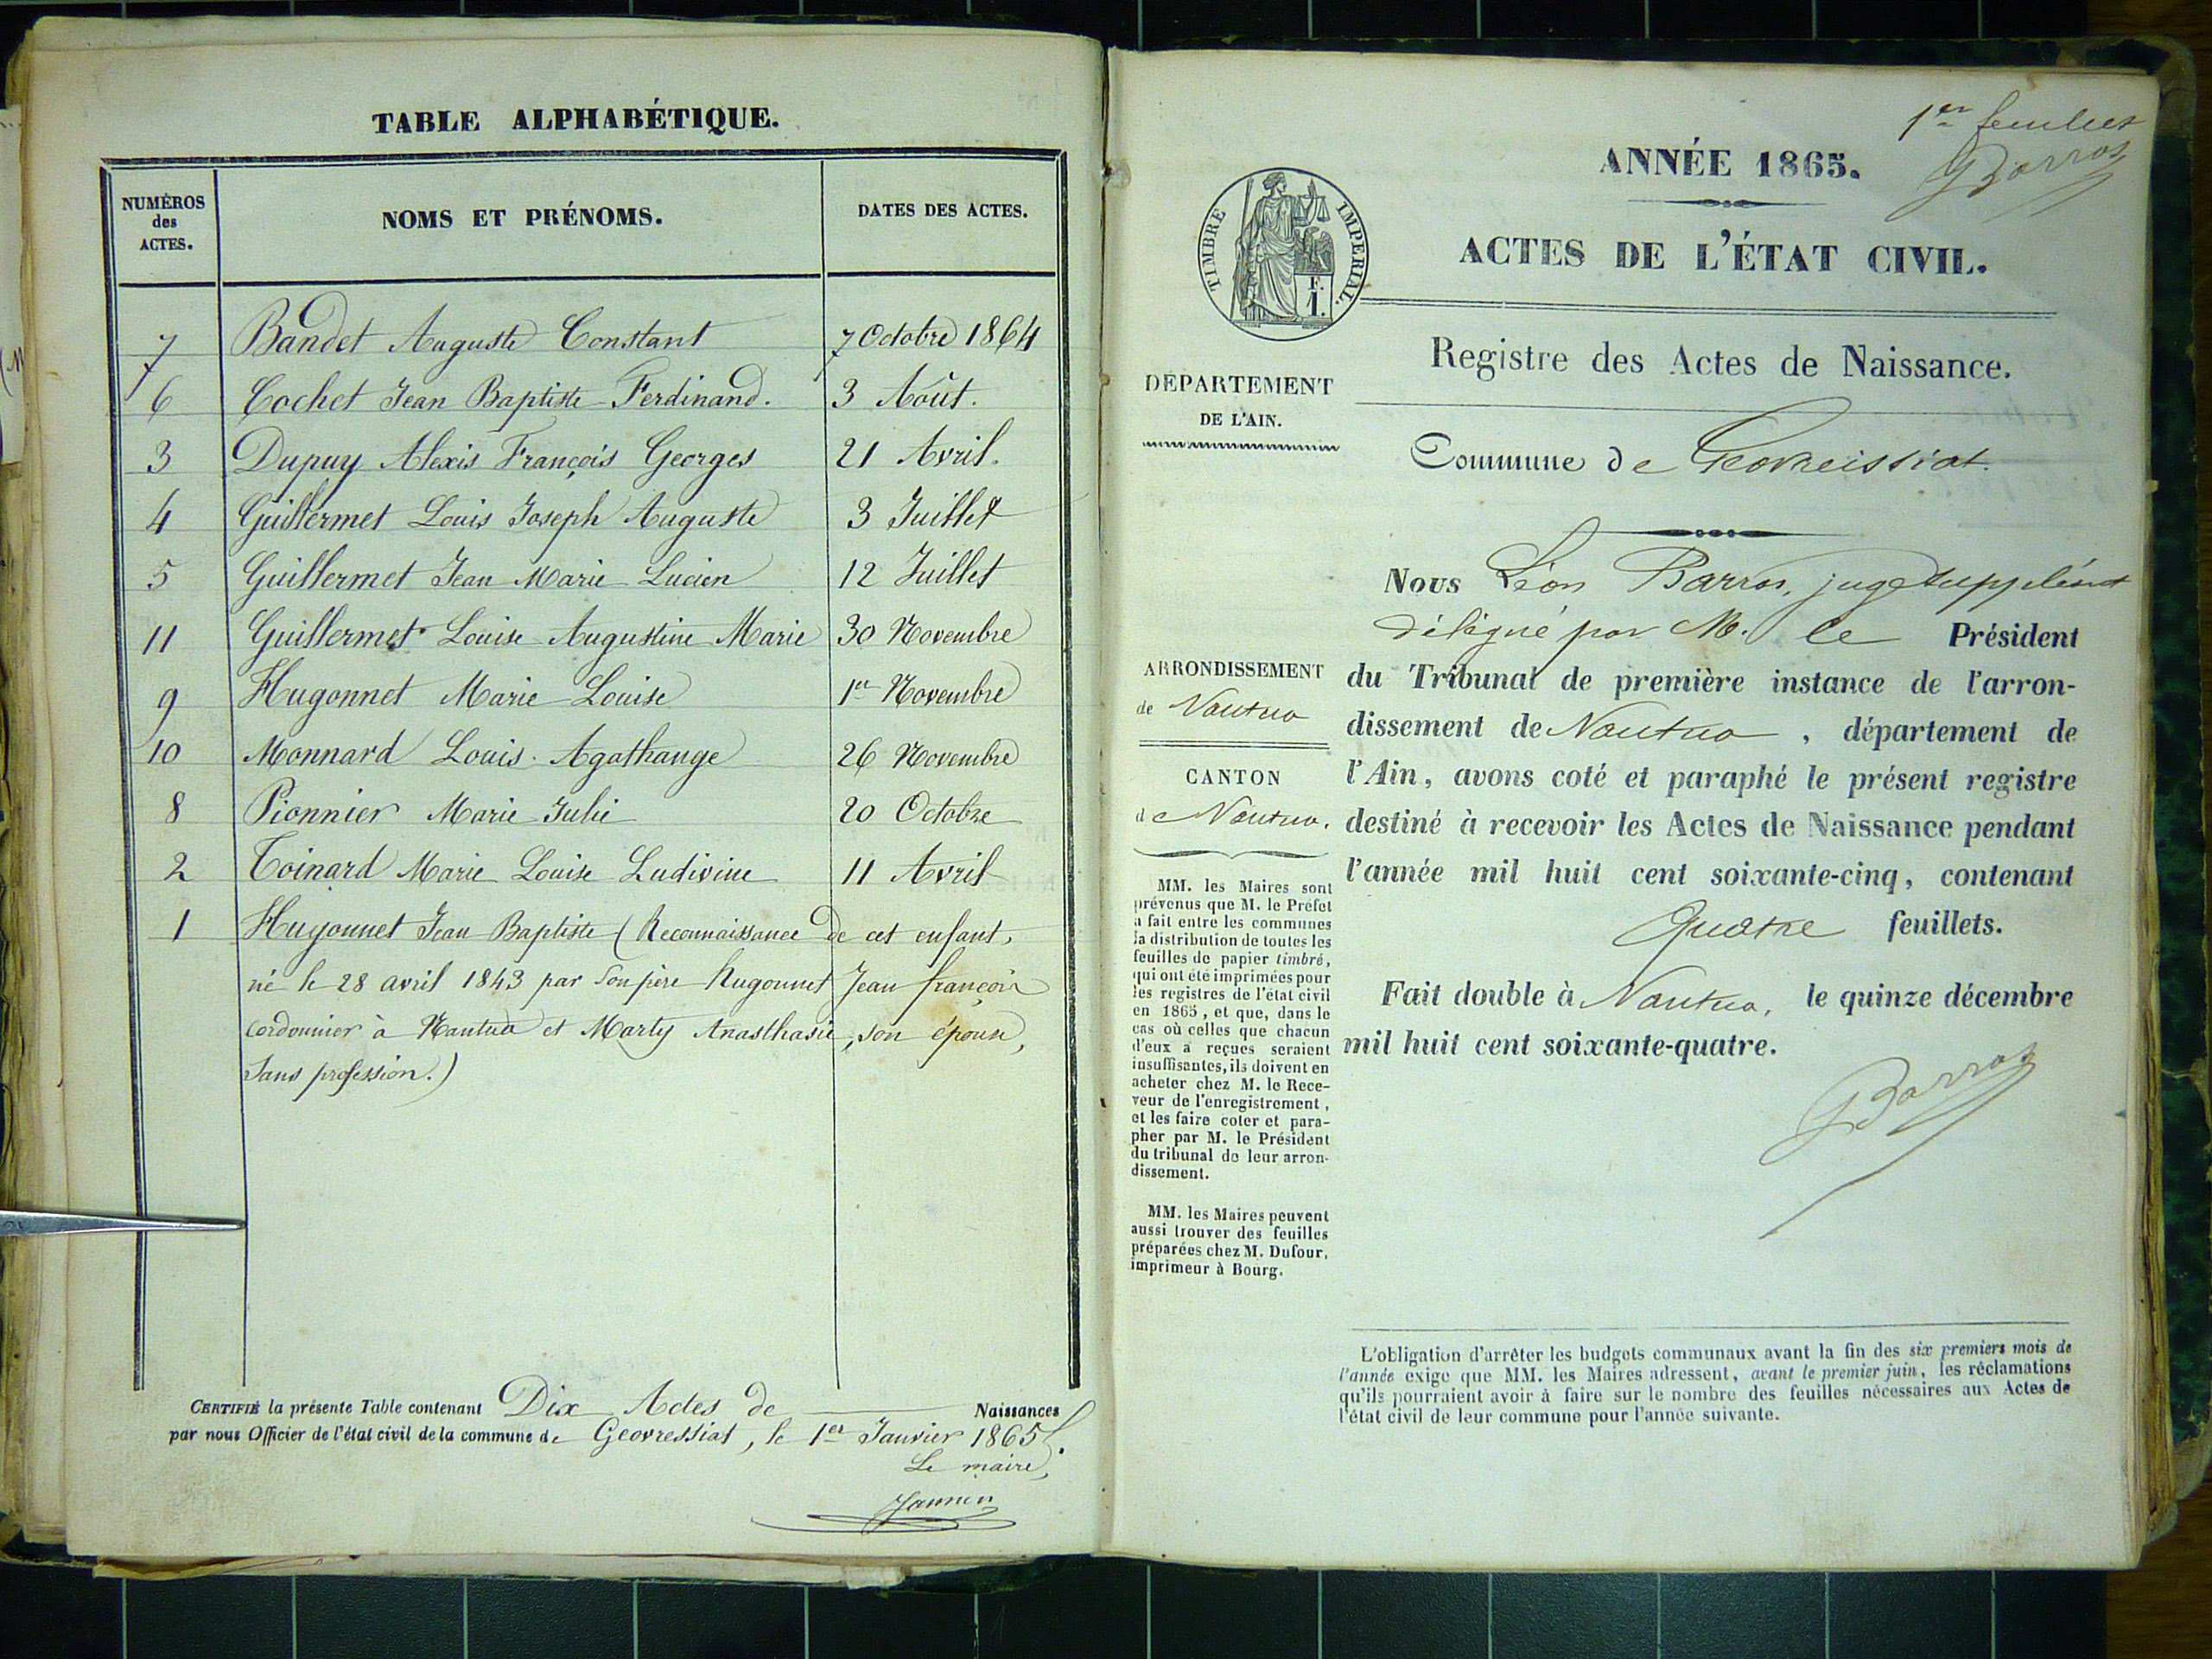 TABLE ALPHABÉTIQUE.
NUMÉROS des ACTES.
NOMS ET PRÉNOMS.
DATES DES ACTES.
7 Bandet Auguste Constant 7 Octobre 1864
6 Cochet Jean Baptiste Ferdinand. 3 Août.
3 Dupuy Alexis François Georges 21 Avril.
4 Guillermet Louis Joseph Auguste 3 Juillet
5 Guillermet Jean Marie Lucien 12 Juillet
11 Guillermet Louise Augustine Marie 30 Novembre
9 Hugonnet Marie Louise 1er Novembre
10 Monnard Louis Agathange 26 Novembre
8 Pionnier Marie Julie 20 Octobre
2 Toinard Marie Louise Ludivine 11 Avril
1 Hugonnet Jean Baptiste (Reconnaissance de cet enfant,
né le 28 avril 1843 par son père hugonnet Jean françois
cordonnier à Nantua et Marty Anasthasie, son épouse,
sans profession.)
CERTIFIÉ la présente Table contenant Dix Actes de Naissances
par nous Officier de l'état civil de la commune de Geovressiat, le 1er Janvier 1865.
Le maire,
Jannin
1er feuillet
Barros
ANNÉE 1865.
ACTES DE L'ÉTAT CIVIL.
TIMBRE IMPERIAL.
F.
1.
Registre des Actes de Naissance.
DÉPARTEMENT
DE L'AIN.
Commune de Geovreissiat.
Nous Léon Barros, juge suppléant
délégué par M. le Président
du Tribunal de première instance de l'arron-
dissement de Nantua, département de
l'Ain, avons coté et paraphé le présent registre
destiné à recevoir les Actes de Naissance pendant
l'année mil huit cent soixante-cinq, contenant
Quatre feuillets.
Fait double à Nantua, le quinze décembre
mil huit cent soixante-quatre.
Barros
ARRONDISSEMENT
de Nantua
CANTON
de Nantua.
MM. les Maires sont
prévenus que M. le Préfet
a fait entre les communes
la distribution de toutes les
feuilles de papier timbré,
qui ont été imprimées pour
les registres de l'état civil
en 1865, et que, dans le
cas où celles que chacun
d'eux a reçues seraient
insuffisantes, ils doivent en
acheter chez M. le Rece-
veur de l'enregistrement,
et les faire coter et para-
pher par M. le Président
du tribunal de leur arron-
dissement.
MM. les Maires peuvent
aussi trouver des feuilles
préparées chez M. Dufour,
imprimeur à Bourg.
L'obligation d'arrêter les budgets communaux avant la fin des six premiers mois de
l'année exige que MM. les Maires adressent, avant le premier juin, les réclamations
qu'ils pourraient avoir à faire sur le nombre des feuilles nécessaires aux Actes de
l'état civil de leur commune pour l'année suivante.